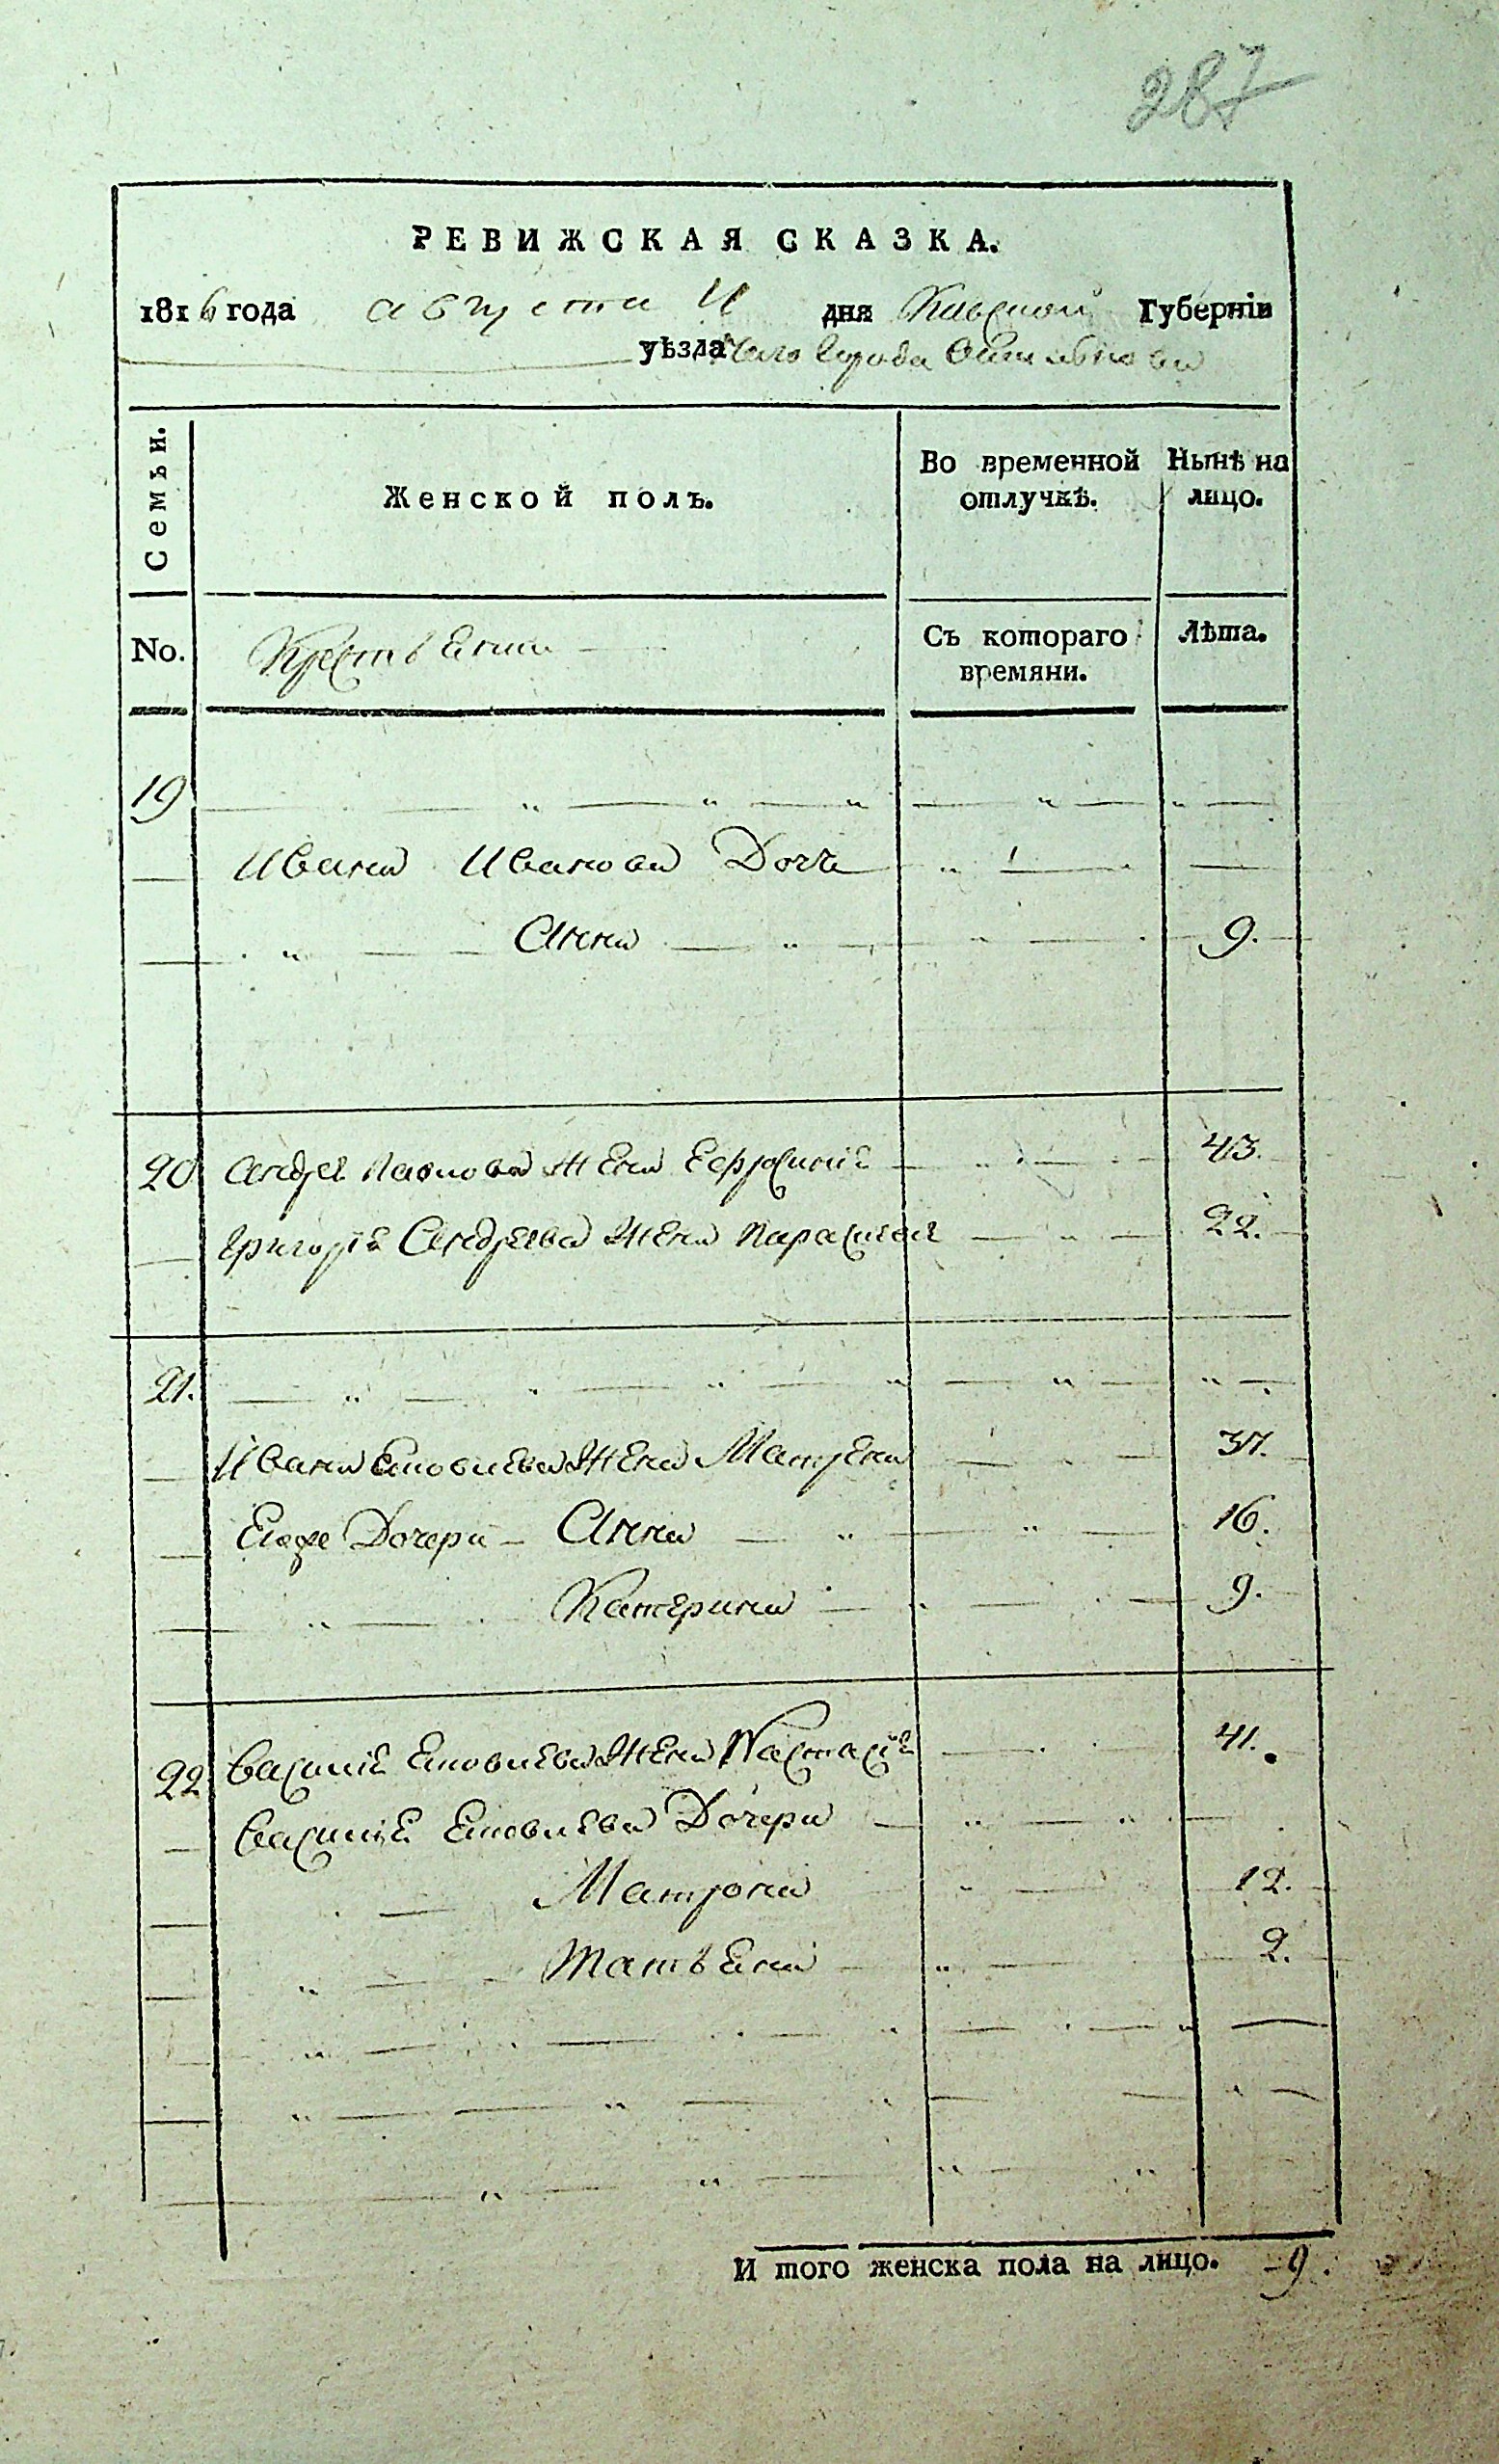 287
РЕВИЖСКАЯ СКАЗКА.
1816 года августа дня Киевской Губерніи
уѣзда города
Семьи. Женской полъ. Во временной отлучкѣ. Нынѣ на лицо.
No. Съ котораго времяни. Лѣта.
19
Ивана Иванова Дочь
Анна 9.
20 Андрея Павлова Жена Ефросинія 43.
Григорія Андреева Жена Параския 22.
21.
Ивана Яковлева Жена Матрена 37.
Егоже Дочери Анна 16.
Катерина 9.
22 Василія Яковлева Жена Настасія 41.
Василія Яковлева Дочери
Матрона 12.
2.
И того женска пола на лицо. 9.